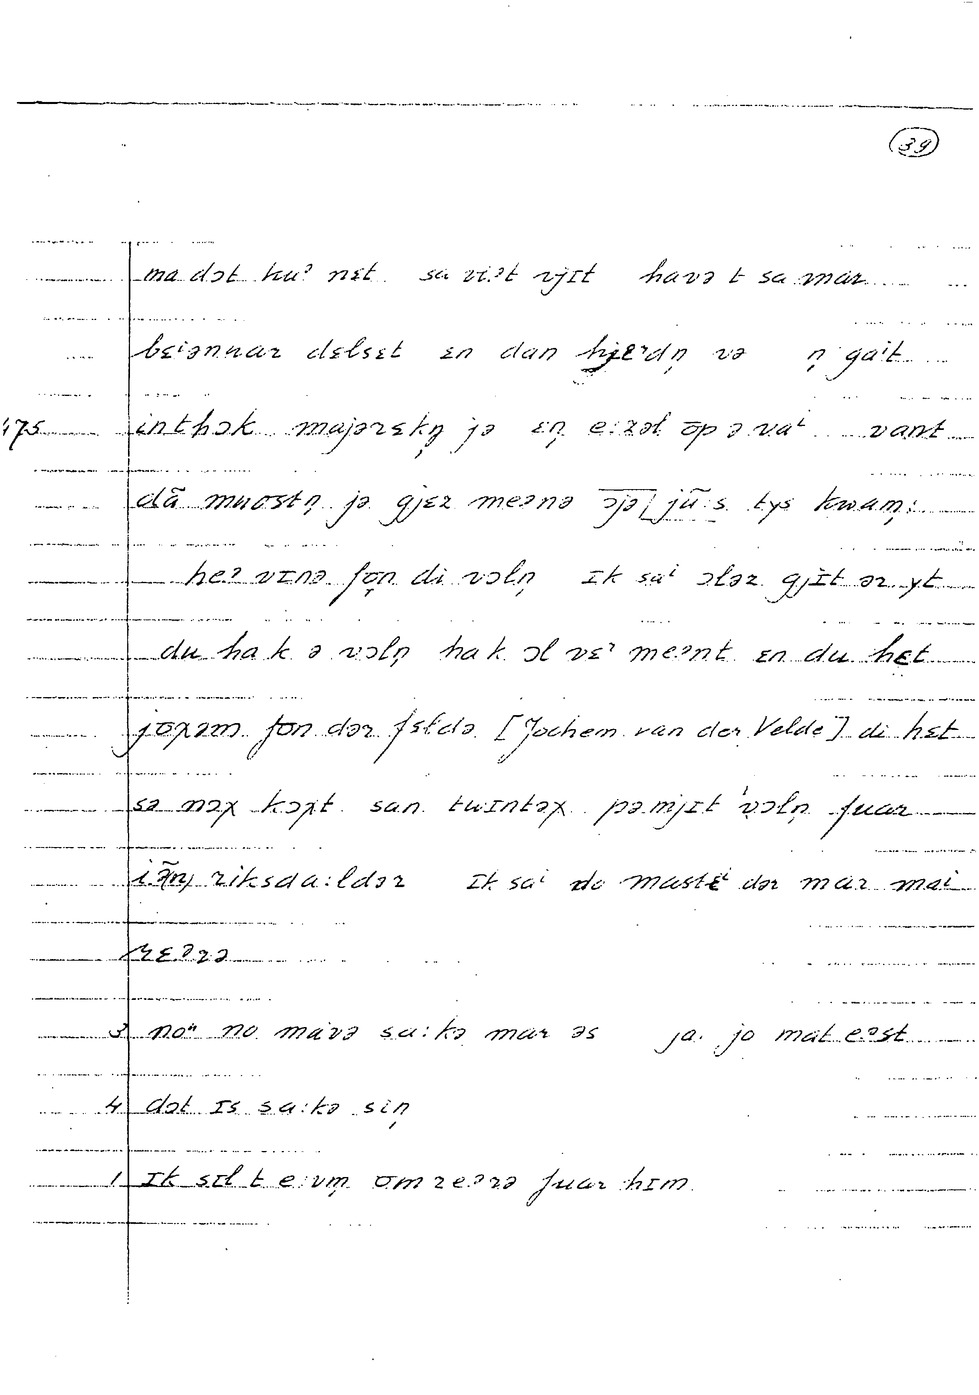 39
ma dɔt kuˀ nɛt sa viˀt vjɪt havə t sa mar
bɛiənuar dɛlsɛt ɛn dan hjɛrdn̩ və n̩ gaⁱt
475 inthɔk majərɛkŋ̩ jə ɛn̩ e:zəl ɔp ə vaⁱ vant
dã muostn̩ jə gjɛr meənə ɔpə jũ:s tys kwam:
heˀ vɪnə fɔn di vɔln̩ ɪk saⁱ ɔlər gjɪt ər yt
du ha k ə vɔln̩ ha k ɔl vɛˀ meənt ɛn du hɛt
joxəm fon dər fɛldə [Jochem van der Velde] di hɛt
sə nɔx kɔxt san twɪntəx pəmjɪt vɔln̩ fuar
riksda:ldər ɪk saⁱ do mastɛⁱ dər mar mai
rɛərə
3 noᵘ no mavə sa:kə mar əs ja: jo mat eəst
4 dɔt ɪs sa:kə sin̩
1 ɪk sɪl t e:vm̩ omreərə fuar hɪm